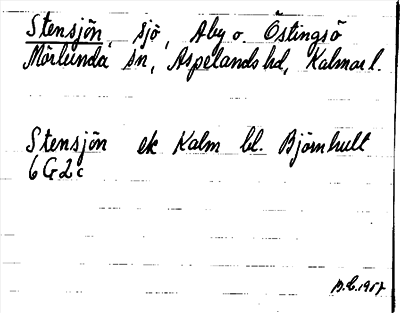 Stensjön, sjö, Åby o. Östingsö
Mörlunda sn, Aspelands hd, Kalmar l.
Stensjön ek Kalm bl. Björnhult
6G2c
1957